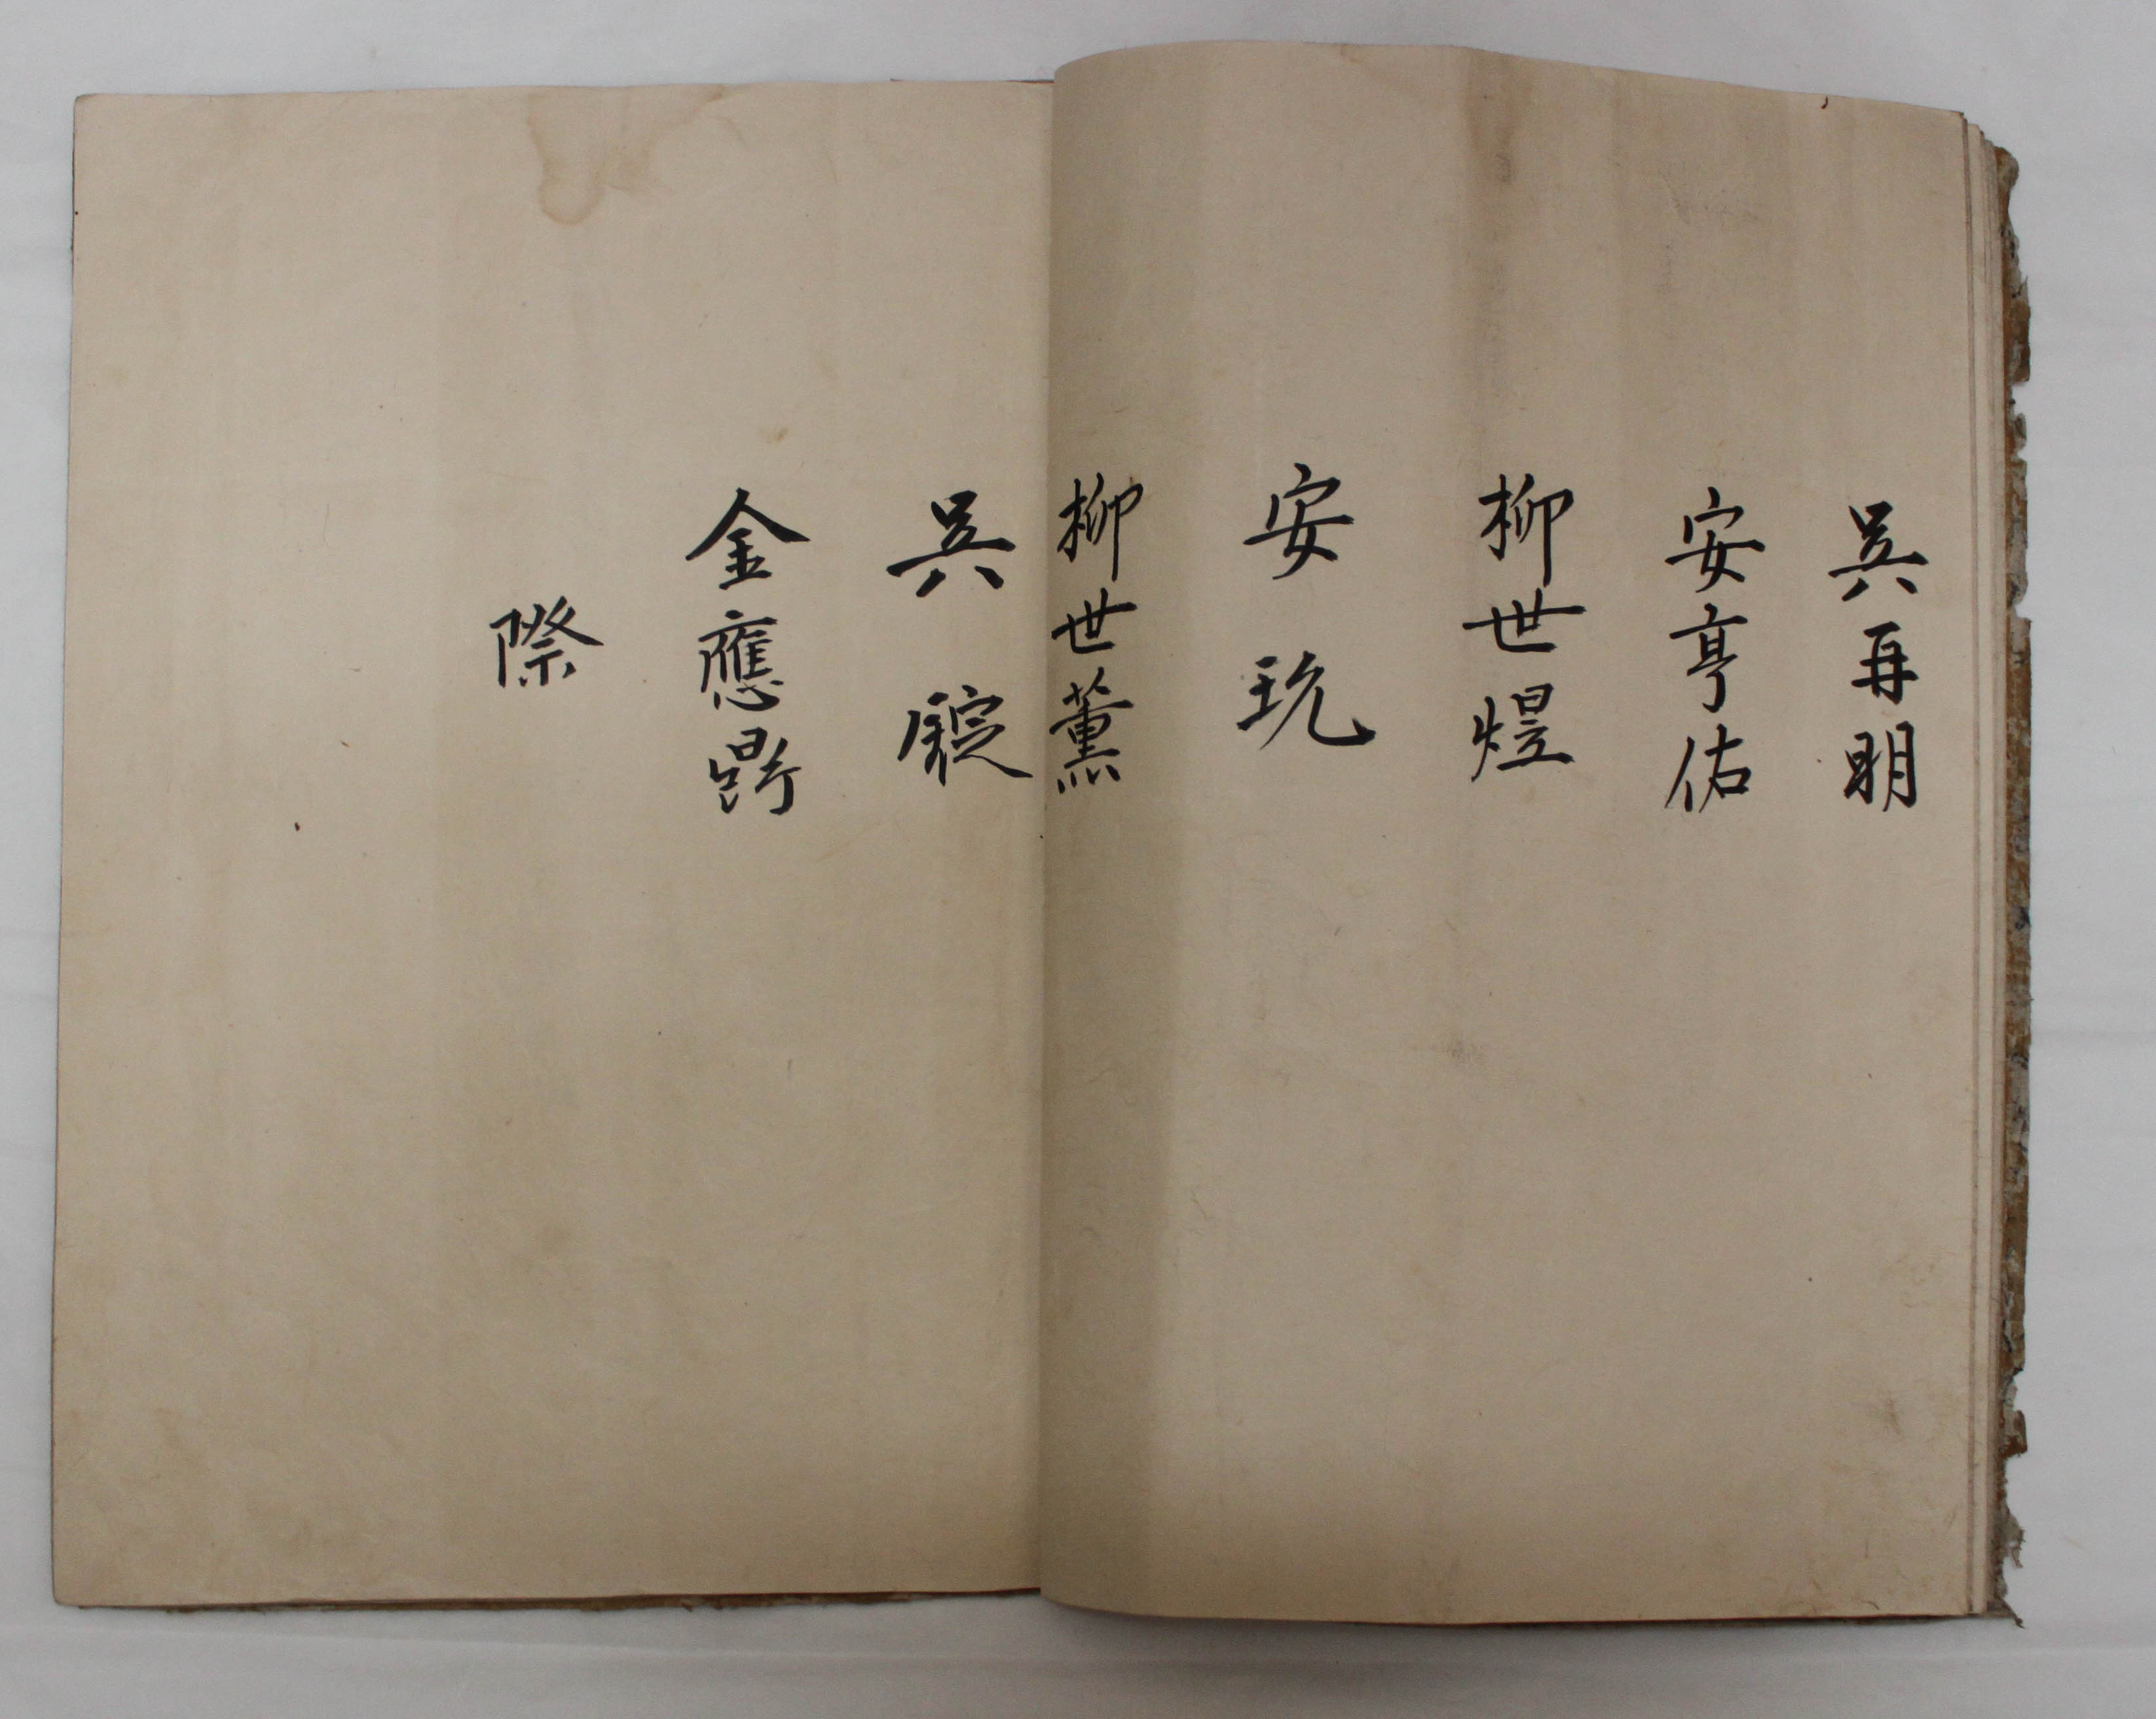 吳再明
安亨佑
柳世煜
安玧
柳世薰
吳
金應鼎
際